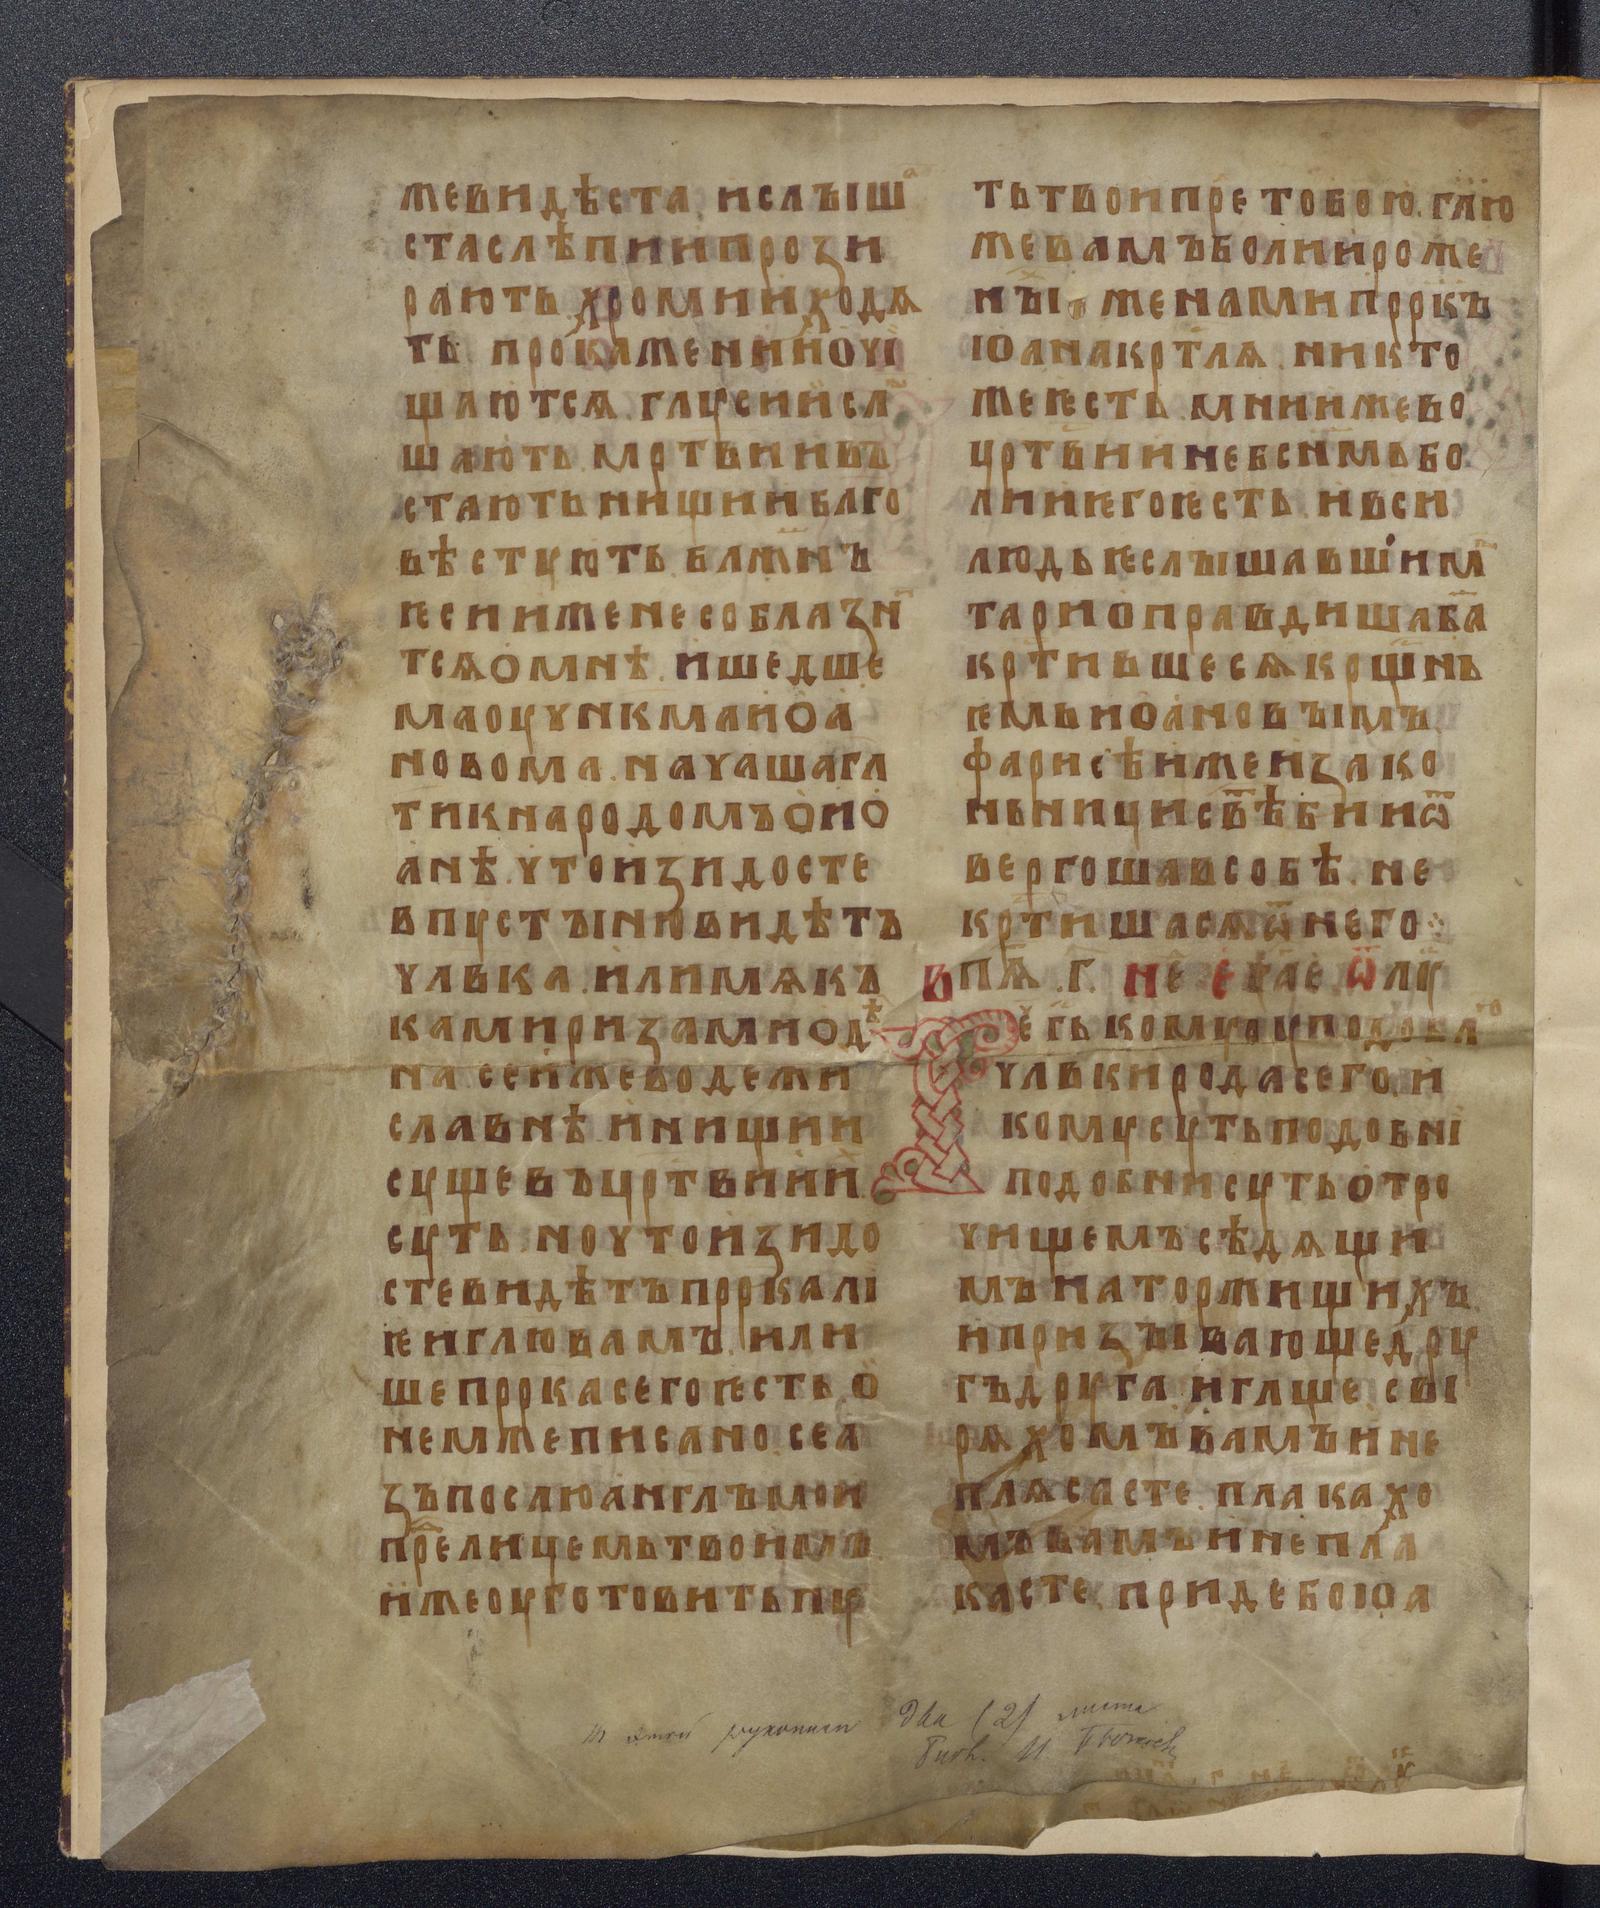 жевидѣста. ислъіша
стаслѣпиипрози
рають. хромииходѧ
ть прокажениіиочі
щаютсѧ. глꙋсиисл
шають. мртвиивъ
стають. нищииблго
вѣстꙋють. блжнъ
ѥсииженесоблазн
тсѧомнѣ. ишедше
маоꙋчнкмаиоа
новома. начашагл
тикнародомъоио
анѣ. чтоизидосте
впꙋстъінювидѣтъ
члвка. илимѧкъ
камиризамиодѣ
на сеижеводежи
славнѣ. инищии
сꙋщевъцртвиии
сꙋть. ночтоизидо
стевидѣтъпрркалі
ѥиглювамъ. или
шепрркасегоѥсть. о
немжеписано. сеа
зъпослюанглъмои
прелицемьтвоимь
ижеоꙋготовитьпꙋ
тьтвоипретобою. глю
жевамъболиироже
нъі женамипрркъ
юанакртлѧ. никто
жеѥсть. мнижебо
цртвииневсимьбо
лииѥгоѥсть. ивси
людьѥслъішавшиим
тариоправдишаба
кртившесѧкрщнь
ѥмьиоановъімъ
фарисѣижеизако
ньницисвѣбииѿ
вергошавсобѣ. не
кртишасѧѿнего
впѧ .г. не еѵае ѿлꙋ
ре гь комꙋоꙋподобл
члвкиродасего. и
комꙋсꙋтьподобні
подобнисꙋтьотро
чищемъсѣдѧщи
мънаторжищихъ
ипризъівающедрꙋ
гъдрꙋга. иглще сви
рѧхомъвамъине
плѧсасте. плакахо
мъвамъинепла
касте. придебоюа
два (2) листа